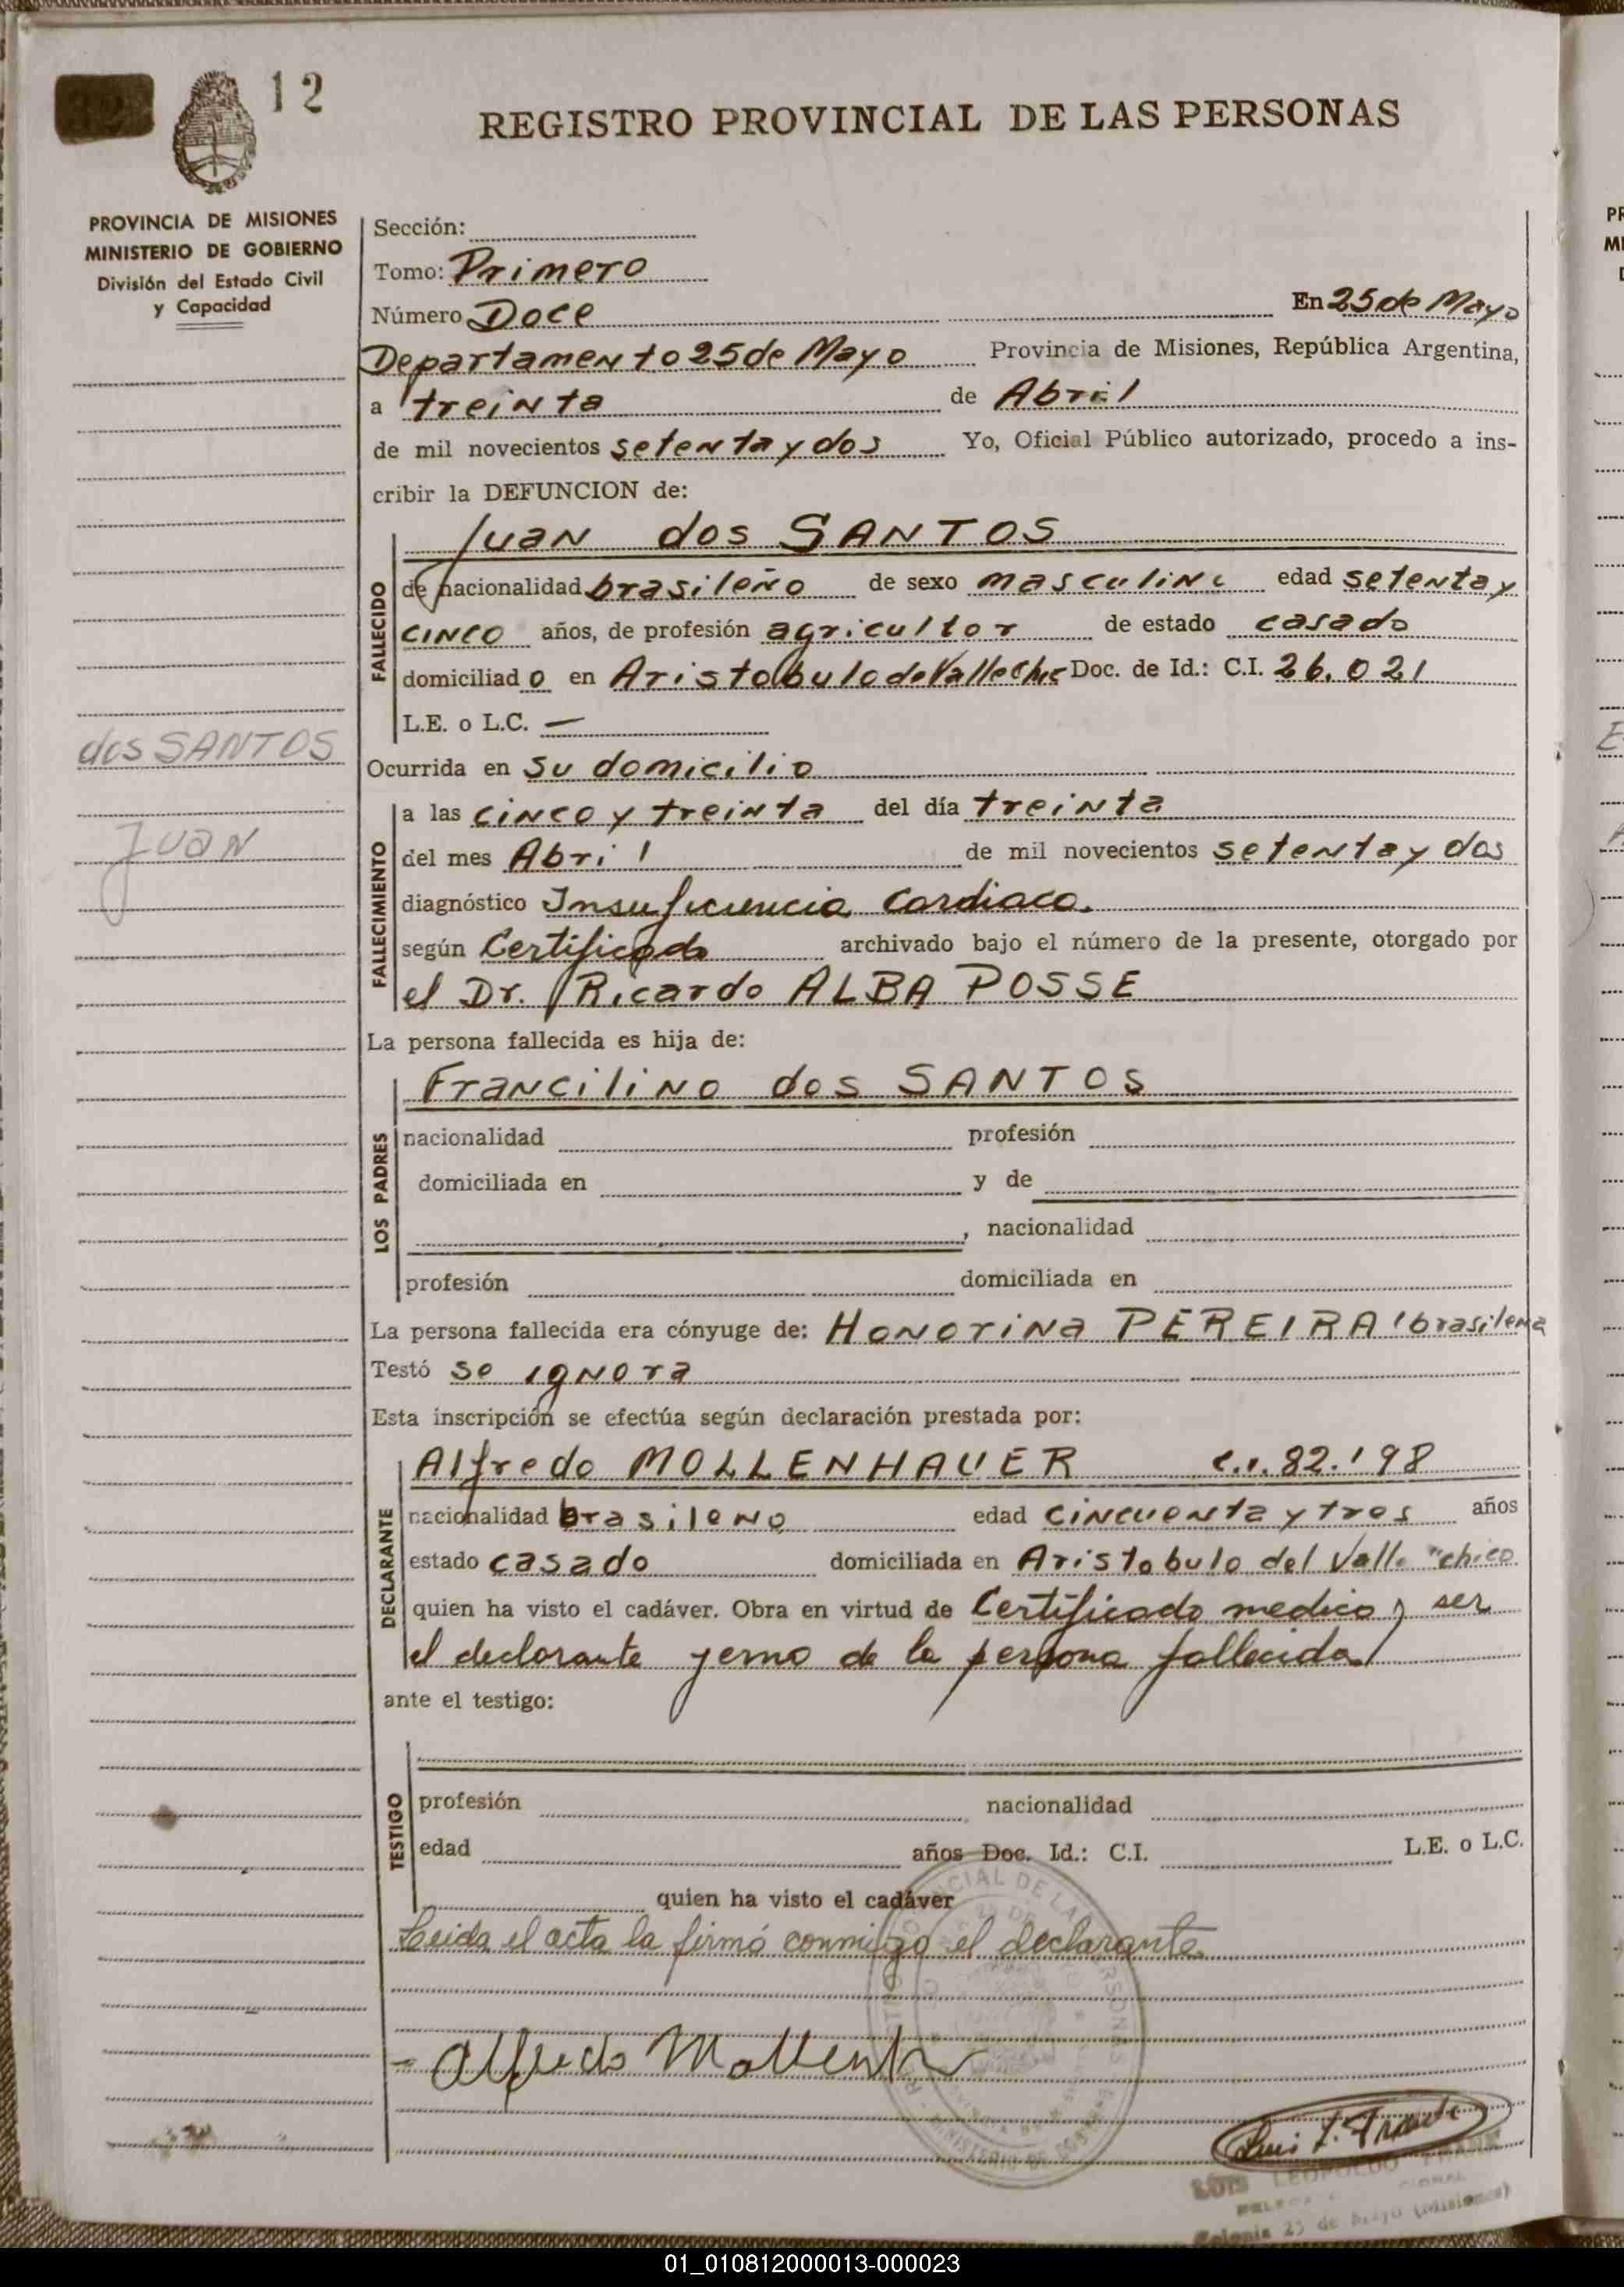 12
REGISTRO PROVINCIAL DE LAS PERSONAS
PROVINCIA DE MISIONES
MINISTERIO DE GOBIERNO
División del Estado Civil
y Capacidad
Sección:
Tomo: Primero
Número Doce En 25 de Mayo
Departamento 25 de Mayo Provincia de Misiones, República Argentina,
a treinta de Abril
de mil novecientos setenta y dos Yo, Oficial Público autorizado, procedo a ins-
cribir la DEFUNCION de:
Juan dos SANTOS
FALLECIDO
de nacionalidad brasileño de sexo masculino edad setenta y
cinco años, de profesión agricultor de estado casado
domiciliado en Aristobulo del Valle Doc. de Id.: C.I. 26.021
L.E. o L.C. —
dos SANTOS
Juan
Ocurrida en su domicilio
FALLECIMIENTO
a las cinco y treinta del día treinta
del mes Abril de mil novecientos setenta y dos
diagnóstico Insuficiencia Cardiaca.
según Certificado archivado bajo el número de la presente, otorgado por
el Dr. Ricardo ALBA POSSE
La persona fallecida es hija de:
LOS PADRES
Francilino dos SANTOS
nacionalidad profesión
domiciliada en y de
, nacionalidad
profesión domiciliada en
La persona fallecida era cónyuge de: Honorina PEREIRA (brasilena
Testó se ignora
Esta inscripción se efectúa según declaración prestada por:
DECLARANTE
Alfredo MOLLENHAUER c.i. 82.198
nacionalidad brasileno edad cincuenta y tres años
estado casado domiciliada en Aristobulo del Valle "chico
quien ha visto el cadáver. Obra en virtud de Certificado medico y ser
el declarante yerno de la persona fallecida
ante el testigo:
TESTIGO
profesión nacionalidad
edad años Doc. Id.: C.I. L.E. o L.C.
quien ha visto el cadáver
Leida el acta la firmó conmigo el declarante
Alfredo Mollenh
Luis L. Frank
LUIS LEOPOLDO FRANK
Colonia 25 de Mayo (Misiones)
01_010812000013-000023